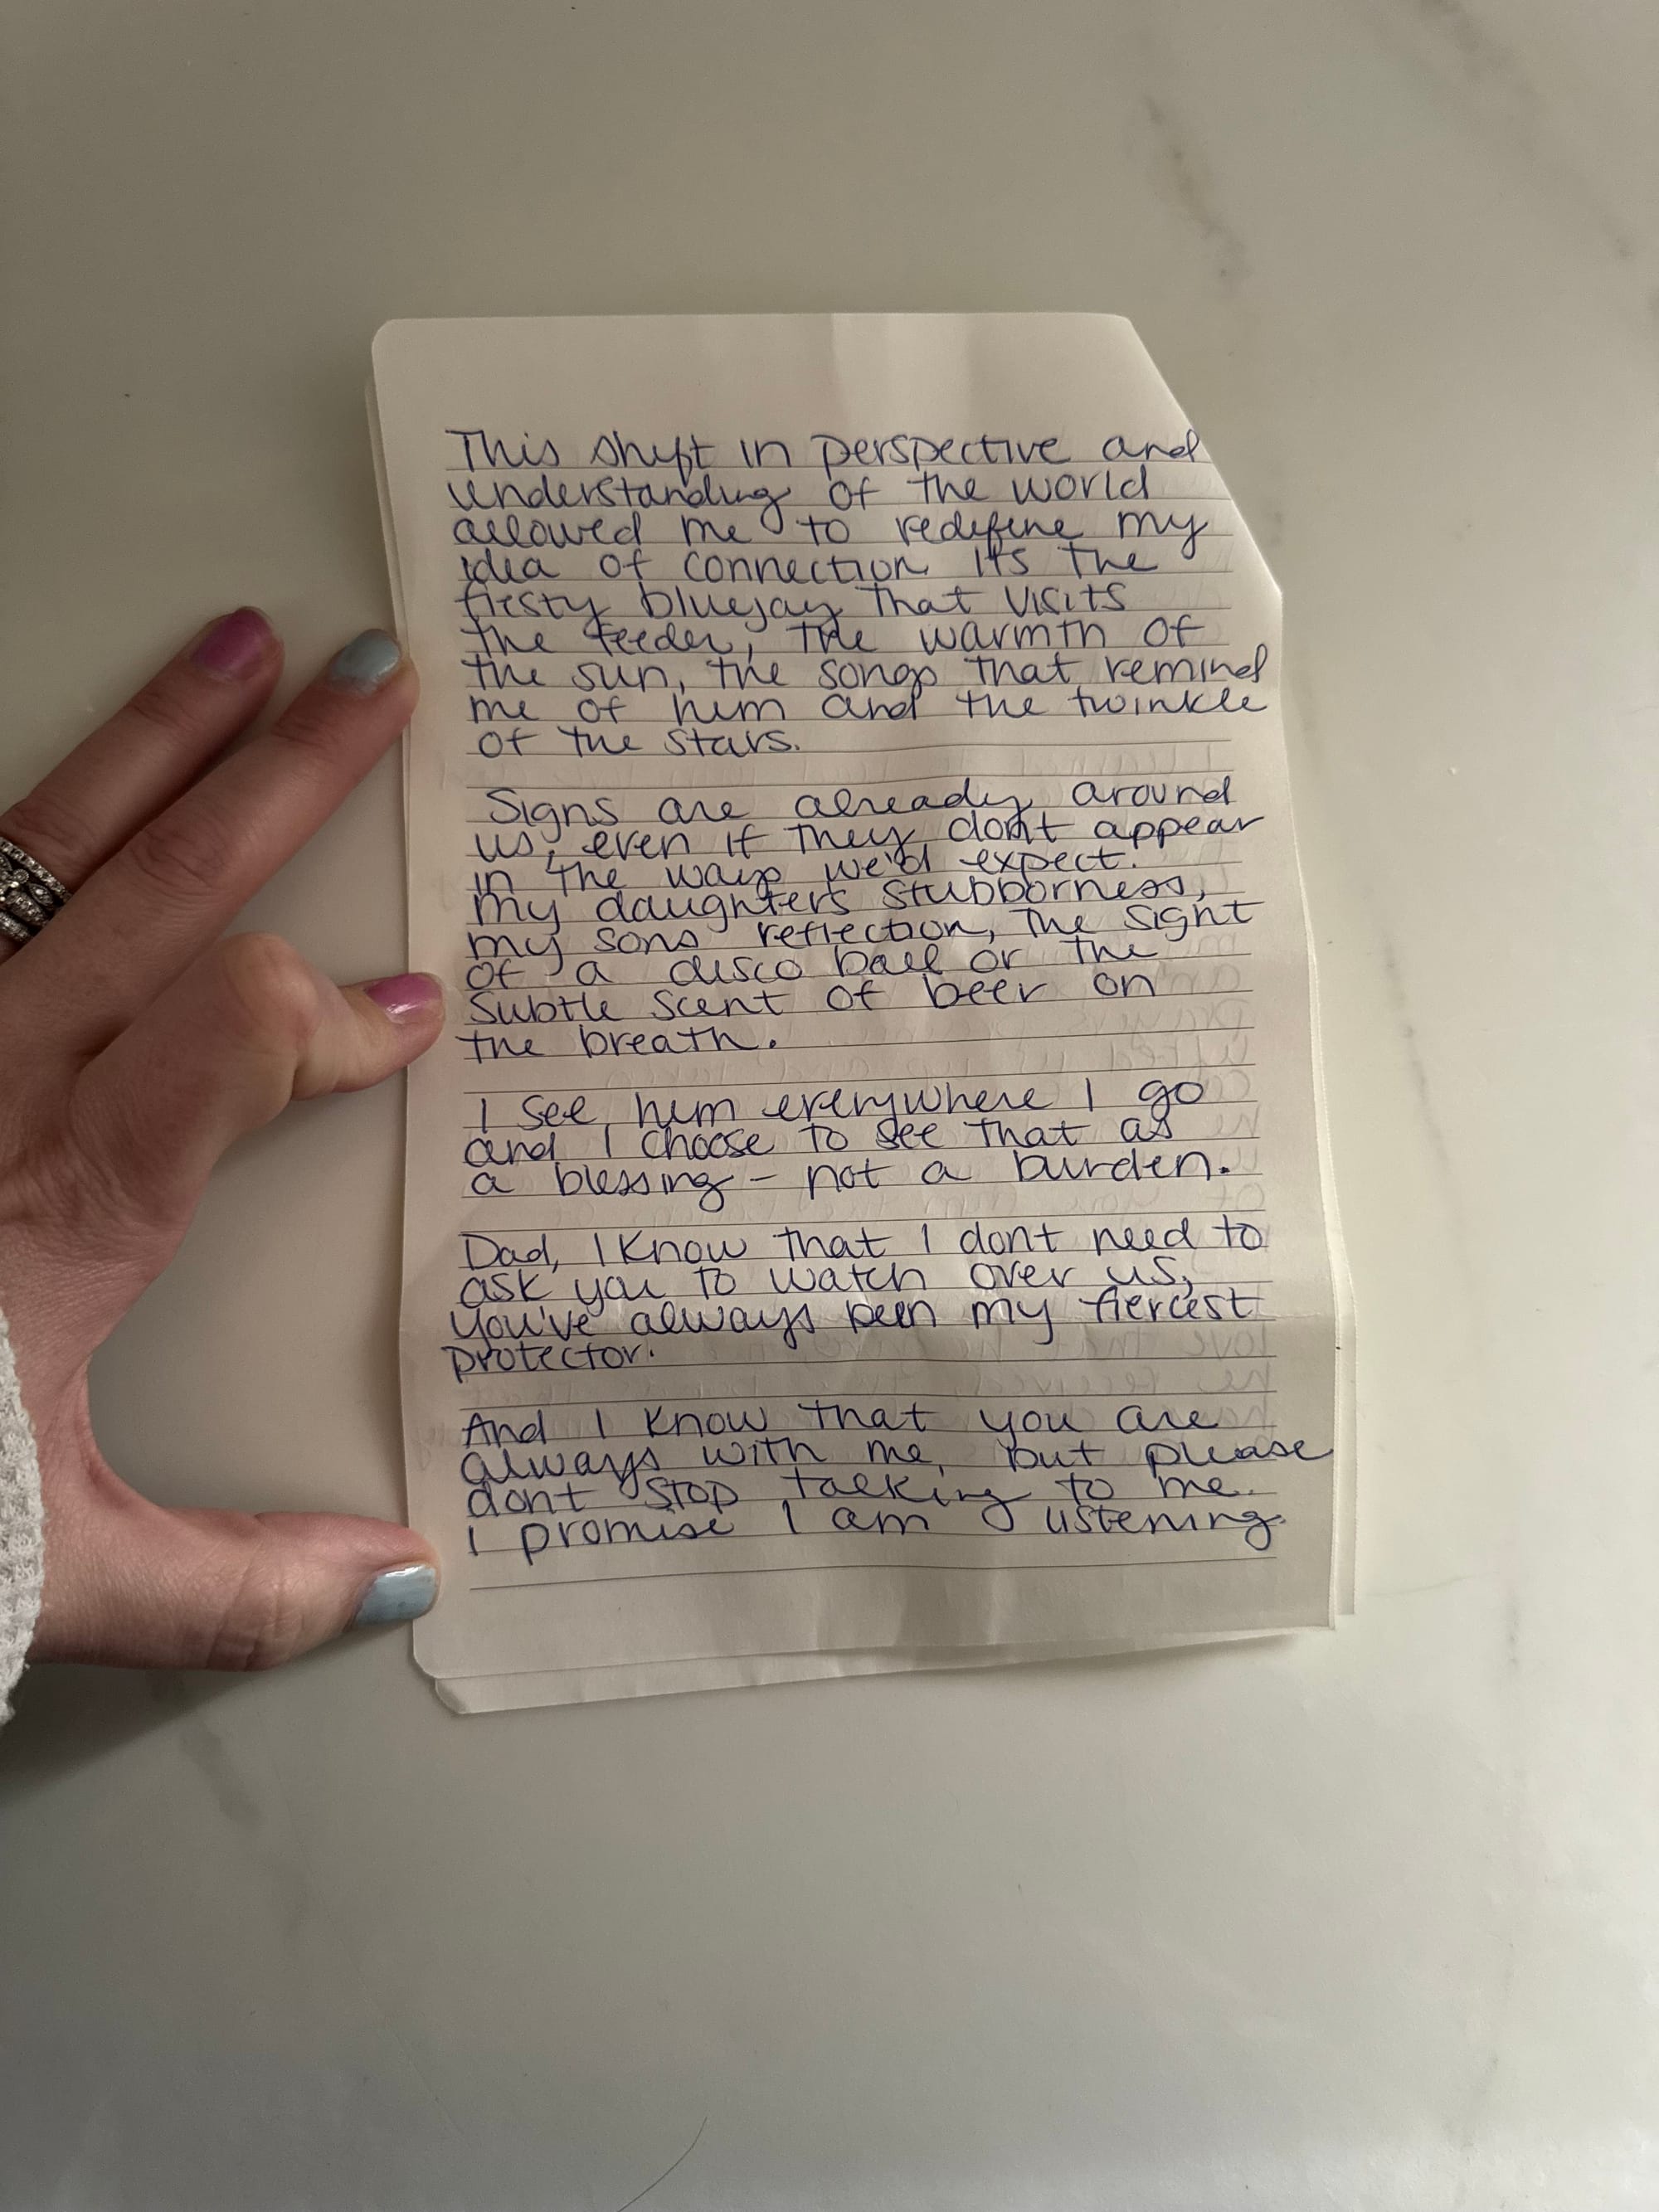 This shift in perspective and
understanding of the world
allowed me to redefine my
idea of connection. It's the
fiesty bluejay that visits
the feeder, the warmth of
the sun, the songs that remind
me of him and the twinkle
of the stars.
Signs are already around
us, even if they don't appear
in the ways we'd expect.
My daughters stubborness,
my sons reflection, the sight
of a disco ball or the
subtle scent of beer on
the breath.
I see him everywhere I go
and I choose to see that as
a blessing - not a burden.
Dad, I know that I dont need to
ask you to watch over us,
you've always been my fiercest
protector.
And I know that you are
always with me, but please
dont stop talking to me.
I promise I am listening.